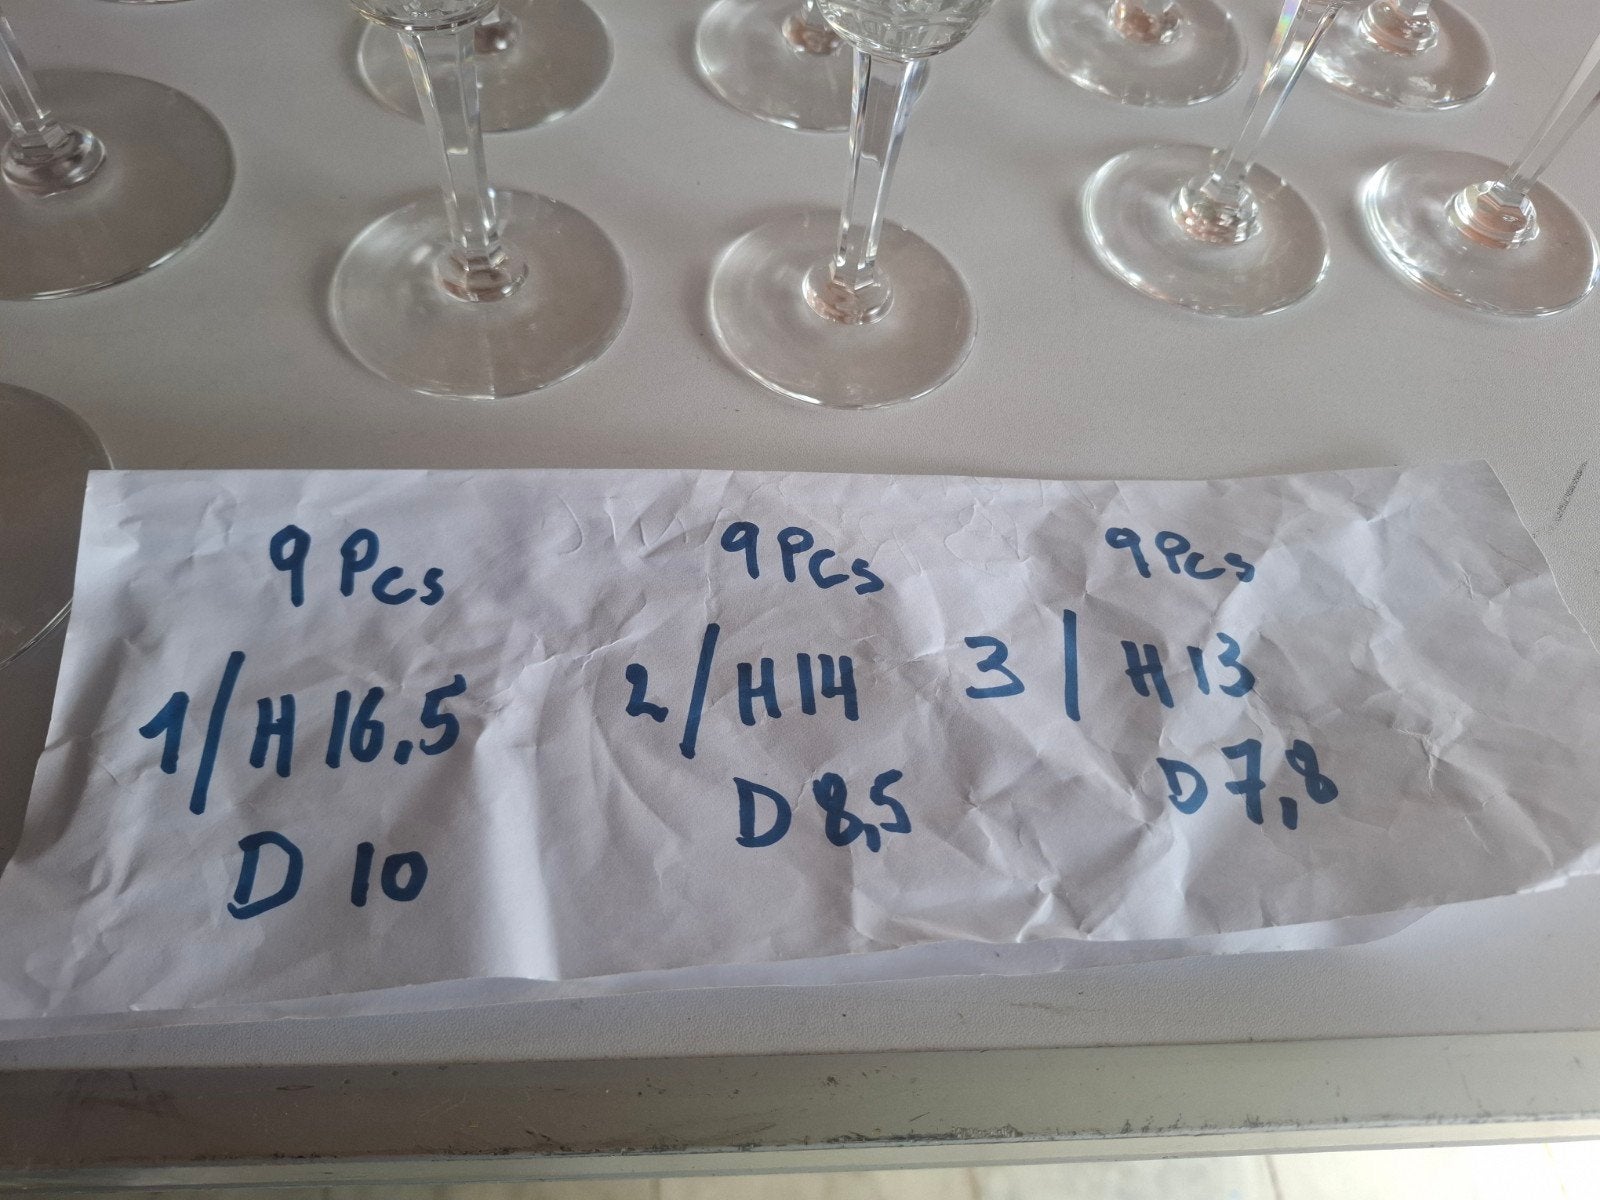 9 Pcs
1/ H 16,5
D 10
9 Pcs
2/ H 14
D 8,5
9 Pcs
3 / H 13
D 7,8